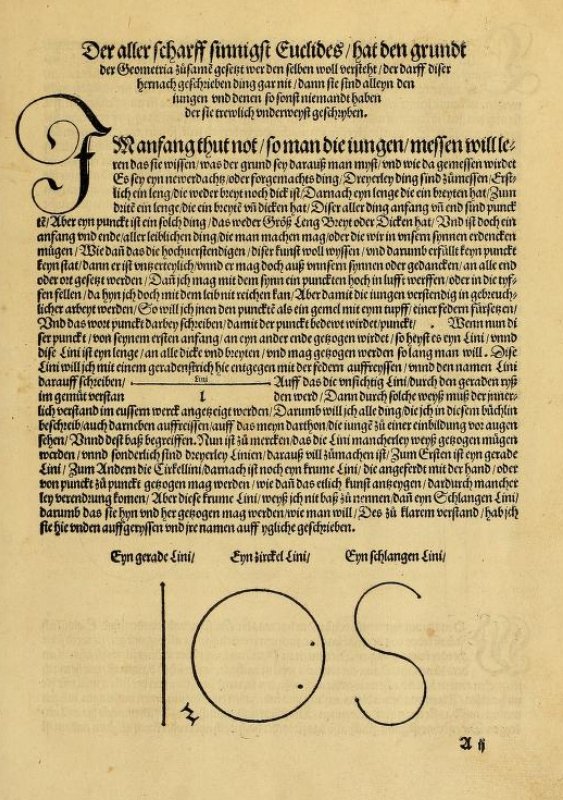 Der aller scharff sinnigst Euclides / hat den grundt
der Geometria zůsamē gesetzt wer den selben woll versteht / der darff diser
hernach geschrieben ding gar nit / dann sie sind alleyn den
iungen vnd denen so sonst niemandt haben
der sie trewlich vnderweyst geschryben.
IM anfang thut not / so man die iungen / messen will le⸗
ren das sie wissen / was der grund sey darauß man myst / vnd wie da gemessen wirdet
Es sey eyn newerdachtz / oder forgemachts ding / Dreyerley ding sind zůmessen / Erst⸗
lich ein leng / die weder breyt noch dick ist / Darnach eyn lenge die ein breyten hat / Zum
dritē ein lenge / die ein breytē vñ dicken hat / Diser aller ding anfang vñ end sind punck
tē / Aber eyn punckt ist ein solch ding / das weder Größ Leng Breyt oder Dicken hat / Vnd ist doch ein
anfang vnd ende / aller leiblichen ding / die man machen mag / oder die wir in vnsern synnen erdencken
mügen / Wie dañ das die hochuerstendigen / diser kunst woll wyssen / vnd darumb erfüllt keyn punckt
keyn stat / dann er ist vnzerteylich / vnnd er mag doch auß vnnsern synnen oder gedancken / an alle end
oder ort gesetzt werden / Dañ jch mag mit dem synn ein puncten hoch in lufft werffen / oder in die tyf⸗
fen fellen / da hyn jch doch mit dem leib nit reichen kan / Aber damit die iungen verstendig in gebreuch⸗
licher arbeyt werden / So will jch jnen den puncktē als ein gemel mit eym tupff / einer federn fürsetzen /
Vnd das wort punckt darbey schreiben / damit der punckt bedewt wirdet / punckt / . Wenn nun di
ser punckt / von seynem ersten anfang / an eyn ander ende gezogen wirdet / so heyst es eyn Lini / vnnd
dise Lini ist eyn lenge / an alle dicke vnd breyten / vnd mag gezogen werden so lang man will. Dise
Lini will jch mit einem geradenstrich hie entgegen mit der federn auffreyssen / vnnd den namen Lini
darauff schreiben / Lini Auff das die vnsichtig Lini / durch den geraden ryß
im gemüt verstan den werd / Dann durch solche weyß muß der jnner⸗
lich verstand im eussern werck angetzeigt werden / Darumb will jch alle ding / die jch in disem büchlin
beschreib / auch darneben auffreissen / auff das meyn darthon / die iungē zů einer einbildung vor augen
sehen / Vnnd dest baß begreiffen. Nun ist zů mercken / das die Lini mancherley weyß getzogen mügen
werden / vnnd sonderlich sind dreyerley Linien / darauß vill zůmachen ist / Zum Ersten ist eyn gerade
Lini / Zum Andern die Cirkellini / darnach ist noch eyn krume Lini / die angeferdt mit der hand / oder
von punckt zů punckt getzogen mag werden / wie dañ das etlich kunst antzeygen / dardurch mancher
ley verendrung komen / Aber diese krume Lini / weyß jch nit baß zů nennen / dañ eyn Schlangen Lini /
darumb das sie hyn vnd her getzogen mag werden / wie man will / Des zů klarem verstand / hab jch
sie hie vnden auffgeryssen vnd jre namen auff ygliche geschrieben.
Eyn gerade Lini / Eyn zirckel Lini / Eyn schlangen Lini /
A ij